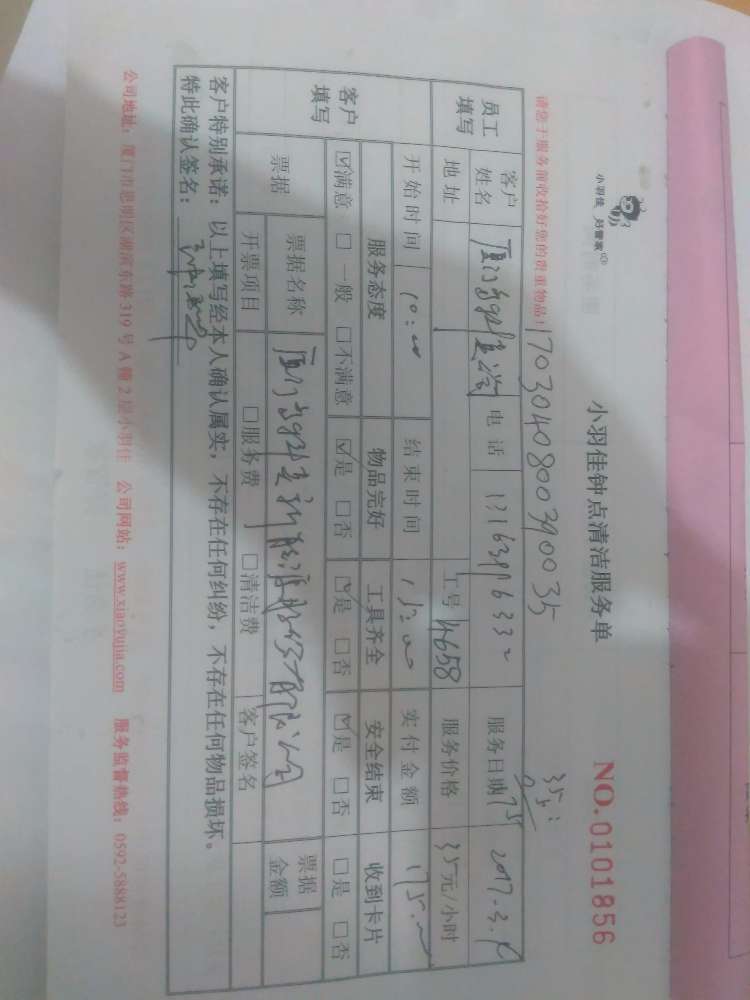 小羽佳 好管家
小羽佳钟点清洁服务单
NO.0101856
请您于服务前收拾好您的贵重物品！
170304080039 0035
员工填写 客户姓名 电话 服务日期 2017.3.
地址 工号 4658 服务价格 35元/小时
客户填写 开始时间 10:00 结束时间 15:00 实付金额 175.00
服务态度 物品完好 工具齐全 安全结束 收到卡片
☑满意 □一般 □不满意 ☑是 □否 ☑是 □否 ☑是 □否 □是 □否
票据 票据名称 票据金额
开票项目 □服务费 □清洁费 客户签名
客户特别承诺：以上填写经本人确认属实，不存在任何纠纷，不存在任何物品损坏。
特此确认签名：
公司地址：厦门市思明区湖滨东路319号A幢2层小羽佳 公司网站：www.xiaoyujia.com 服务监督热线：0592-5888123